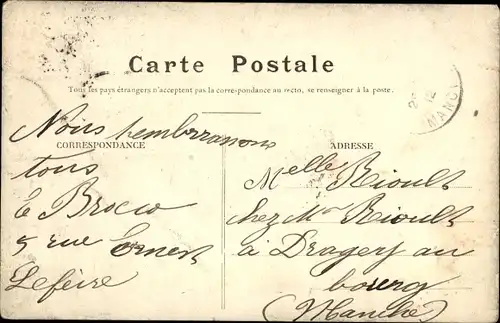 Carte Postale
Tous les pays étrangers n'acceptent pas la correspondance au recto, se renseigner à la poste.
MANCY
12
CORRESPONDANCE
Nous hembrrassons
tous
E Brocco
5 rue Ernest
Lefèvre
ADRESSE
Melle Rioult
chez Mr Rioult
à Dragey au
bourg
(Manche)